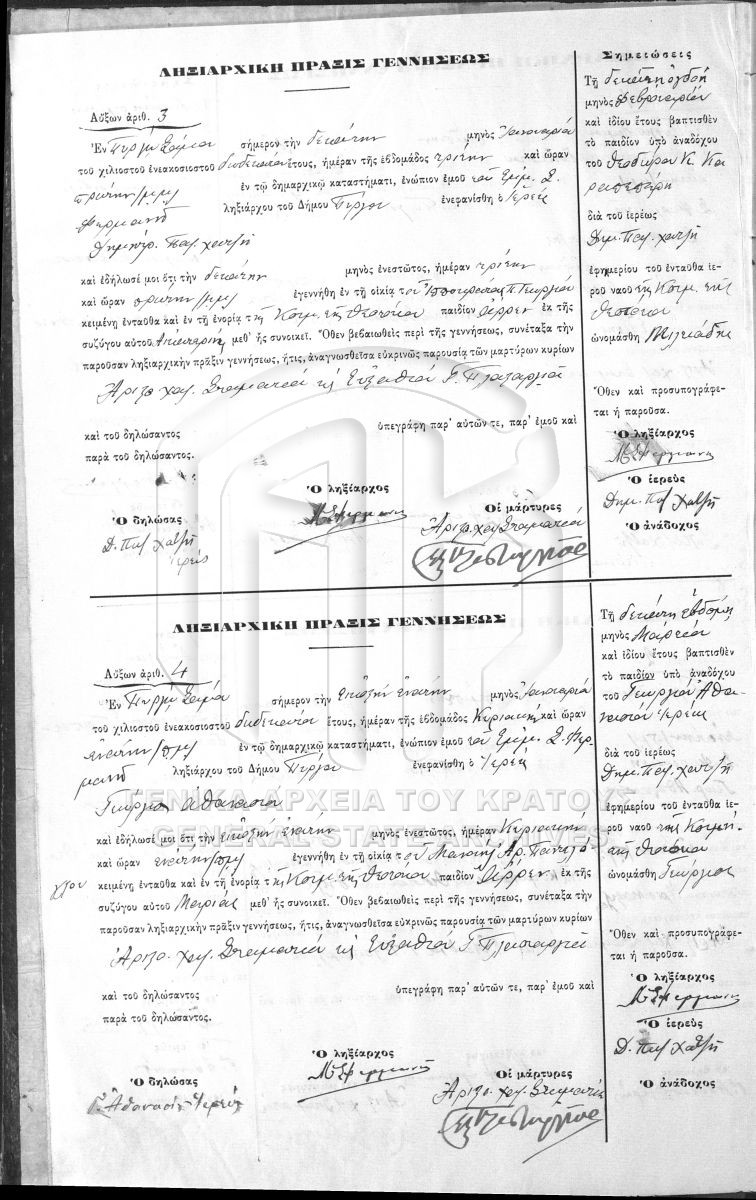 ΛΗΞΙΑΡΧΙΚΗ ΠΡΑΞΙΣ ΓΕΝΝΗΣΕΩΣ
Αὔξων ἀριθ. 3
Ἐν Πύργῳ Σάμου σήμερον τὴν δεκάτην μηνὸς Ἰανουαρίου
τοῦ χιλιοστοῦ ἐνεακοσιοστοῦ δωδεκάτου ἔτους, ἡμέραν τῆς ἑβδομάδος τρίτην καὶ ὥραν
πρώτην μ.μ. ἐν τῷ δημαρχικῷ καταστήματι, ἐνώπιον ἐμοῦ τοῦ
ληξιάρχου τοῦ Δήμου Πύργου ἐνεφανίσθη ὁ ἱερεὺς
Δημήτρ. Παπ. χατζῆ
καὶ ἐδήλωσέ μοι ὅτι τὴν δεκάτην μηνὸς ἐνεστῶτος, ἡμέραν τρίτην
καὶ ὥραν πρώτην μ.μ. ἐγεννήθη ἐν τῇ οἰκίᾳ τοῦ Π. Γεωργίου
κειμένῃ ἐνταῦθα καὶ ἐν τῇ ἐνορίᾳ τῆς Κοιμ. τῆς Θεοτόκου παιδίον ἄῤῥεν ἐκ τῆς
συζύγου αὐτοῦ μεθ' ἧς συνοικεῖ. Ὅθεν βεβαιωθεὶς περὶ τῆς γεννήσεως, συνέταξα τὴν
παροῦσαν ληξιαρχικὴν πρᾶξιν γεννήσεως, ἥτις, ἀναγνωσθεῖσα εὐκρινῶς παρουσίᾳ τῶν μαρτύρων κυρίων
χατ. Σταματίου κ Εὐσταθίου Γ.
ὑπεγράφη παρ' αὐτῶν τε, παρ' ἐμοῦ καὶ
καὶ τοῦ δηλώσαντος
παρὰ τοῦ δηλώσαντος.
Ὁ δηλώσας
Δ. Παπ Χατζῆ
ἱερεύς
Ὁ ληξίαρχος
Οἱ μάρτυρες
Σημειώσεις
Τῇ δεκάτῃ ὀγδόῃ
μηνὸς Φεβρουαρίου
καὶ ἰδίου ἔτους βαπτισθὲν
τὸ παιδίον ὑπὸ ἀναδόχου
τοῦ Θεοδώρου Κ.
διὰ τοῦ ἱερέως
Δημ. Παπ. χατζῆ
ἐφημερίου τοῦ ἐνταῦθα ἱε-
ροῦ ναοῦ τῆς Κοιμ. τῆς
Θεοτόκου
ὠνομάσθη Μιλτιάδης
Ὅθεν καὶ προσυπογράφε-
ται ἡ παροῦσα.
Ὁ ληξίαρχος
Ὁ ἱερεὺς
Δημ. Παπ Χατζῆ
Ὁ ἀνάδοχος
ΛΗΞΙΑΡΧΙΚΗ ΠΡΑΞΙΣ ΓΕΝΝΗΣΕΩΣ
Αὔξων ἀριθ. 4
Ἐν Πύργῳ Σάμου σήμερον τὴν εἰκοστὴν ἐνάτην μηνὸς Ἰανουαρίου
τοῦ χιλιοστοῦ ἐνεακοσιοστοῦ δωδεκάτου ἔτους, ἡμέραν τῆς ἑβδομάδος Κυριακὴν καὶ ὥραν
ἐνάτην π.μ. ἐν τῷ δημαρχικῷ καταστήματι, ἐνώπιον ἐμοῦ τοῦ
ληξιάρχου τοῦ Δήμου Πύργου ἐνεφανίσθη ὁ ἱερεὺς
Γεώργιος Ἀθανασίου
καὶ ἐδήλωσέ μοι ὅτι τὴν εἰκοστὴν ἐνάτην μηνὸς ἐνεστῶτος, ἡμέραν Κυριακὴν
καὶ ὥραν ἐνάτην π.μ. ἐγεννήθη ἐν τῇ οἰκίᾳ τοῦ
κειμένῃ ἐνταῦθα καὶ ἐν τῇ ἐνορίᾳ τῆς Κοιμ. τῆς Θεοτόκου παιδίον ἄῤῥεν ἐκ τῆς
συζύγου αὐτοῦ Μαρίας μεθ' ἧς συνοικεῖ. Ὅθεν βεβαιωθεὶς περὶ τῆς γεννήσεως, συνέταξα τὴν
παροῦσαν ληξιαρχικὴν πρᾶξιν γεννήσεως, ἥτις, ἀναγνωσθεῖσα εὐκρινῶς παρουσίᾳ τῶν μαρτύρων κυρίων
χατ. Σταματίου κ Εὐσταθίου Γ.
ὑπεγράφη παρ' αὐτῶν τε, παρ' ἐμοῦ καὶ
καὶ τοῦ δηλώσαντος
παρὰ τοῦ δηλώσαντος.
Ὁ δηλώσας
Γ. Ἀθανασίου ἱερεύς
Ὁ ληξίαρχος
Οἱ μάρτυρες
Τῇ δεκάτῃ ἑβδόμῃ
μηνὸς Μαρτίου
καὶ ἰδίου ἔτους βαπτισθὲν
τὸ παιδίον ὑπὸ ἀναδόχου
τοῦ Γεωργίου Ἀθα-
νασίου ἱερέως
διὰ τοῦ ἱερέως
Δημ. Παπ. χατζῆ
ἐφημερίου τοῦ ἐνταῦθα ἱε-
ροῦ ναοῦ τῆς Κοιμή.
τῆς Θεοτόκου
ὠνομάσθη Γεώργιος
Ὅθεν καὶ προσυπογράφε-
ται ἡ παροῦσα.
Ὁ ληξίαρχος
Ὁ ἱερεὺς
Δ. Παπ Χατζῆ
Ὁ ἀνάδοχος
ΓΕΝΙΚΑ ΑΡΧΕΙΑ ΤΟΥ ΚΡΑΤΟΥΣ
GENERAL STATE ARCHIVES